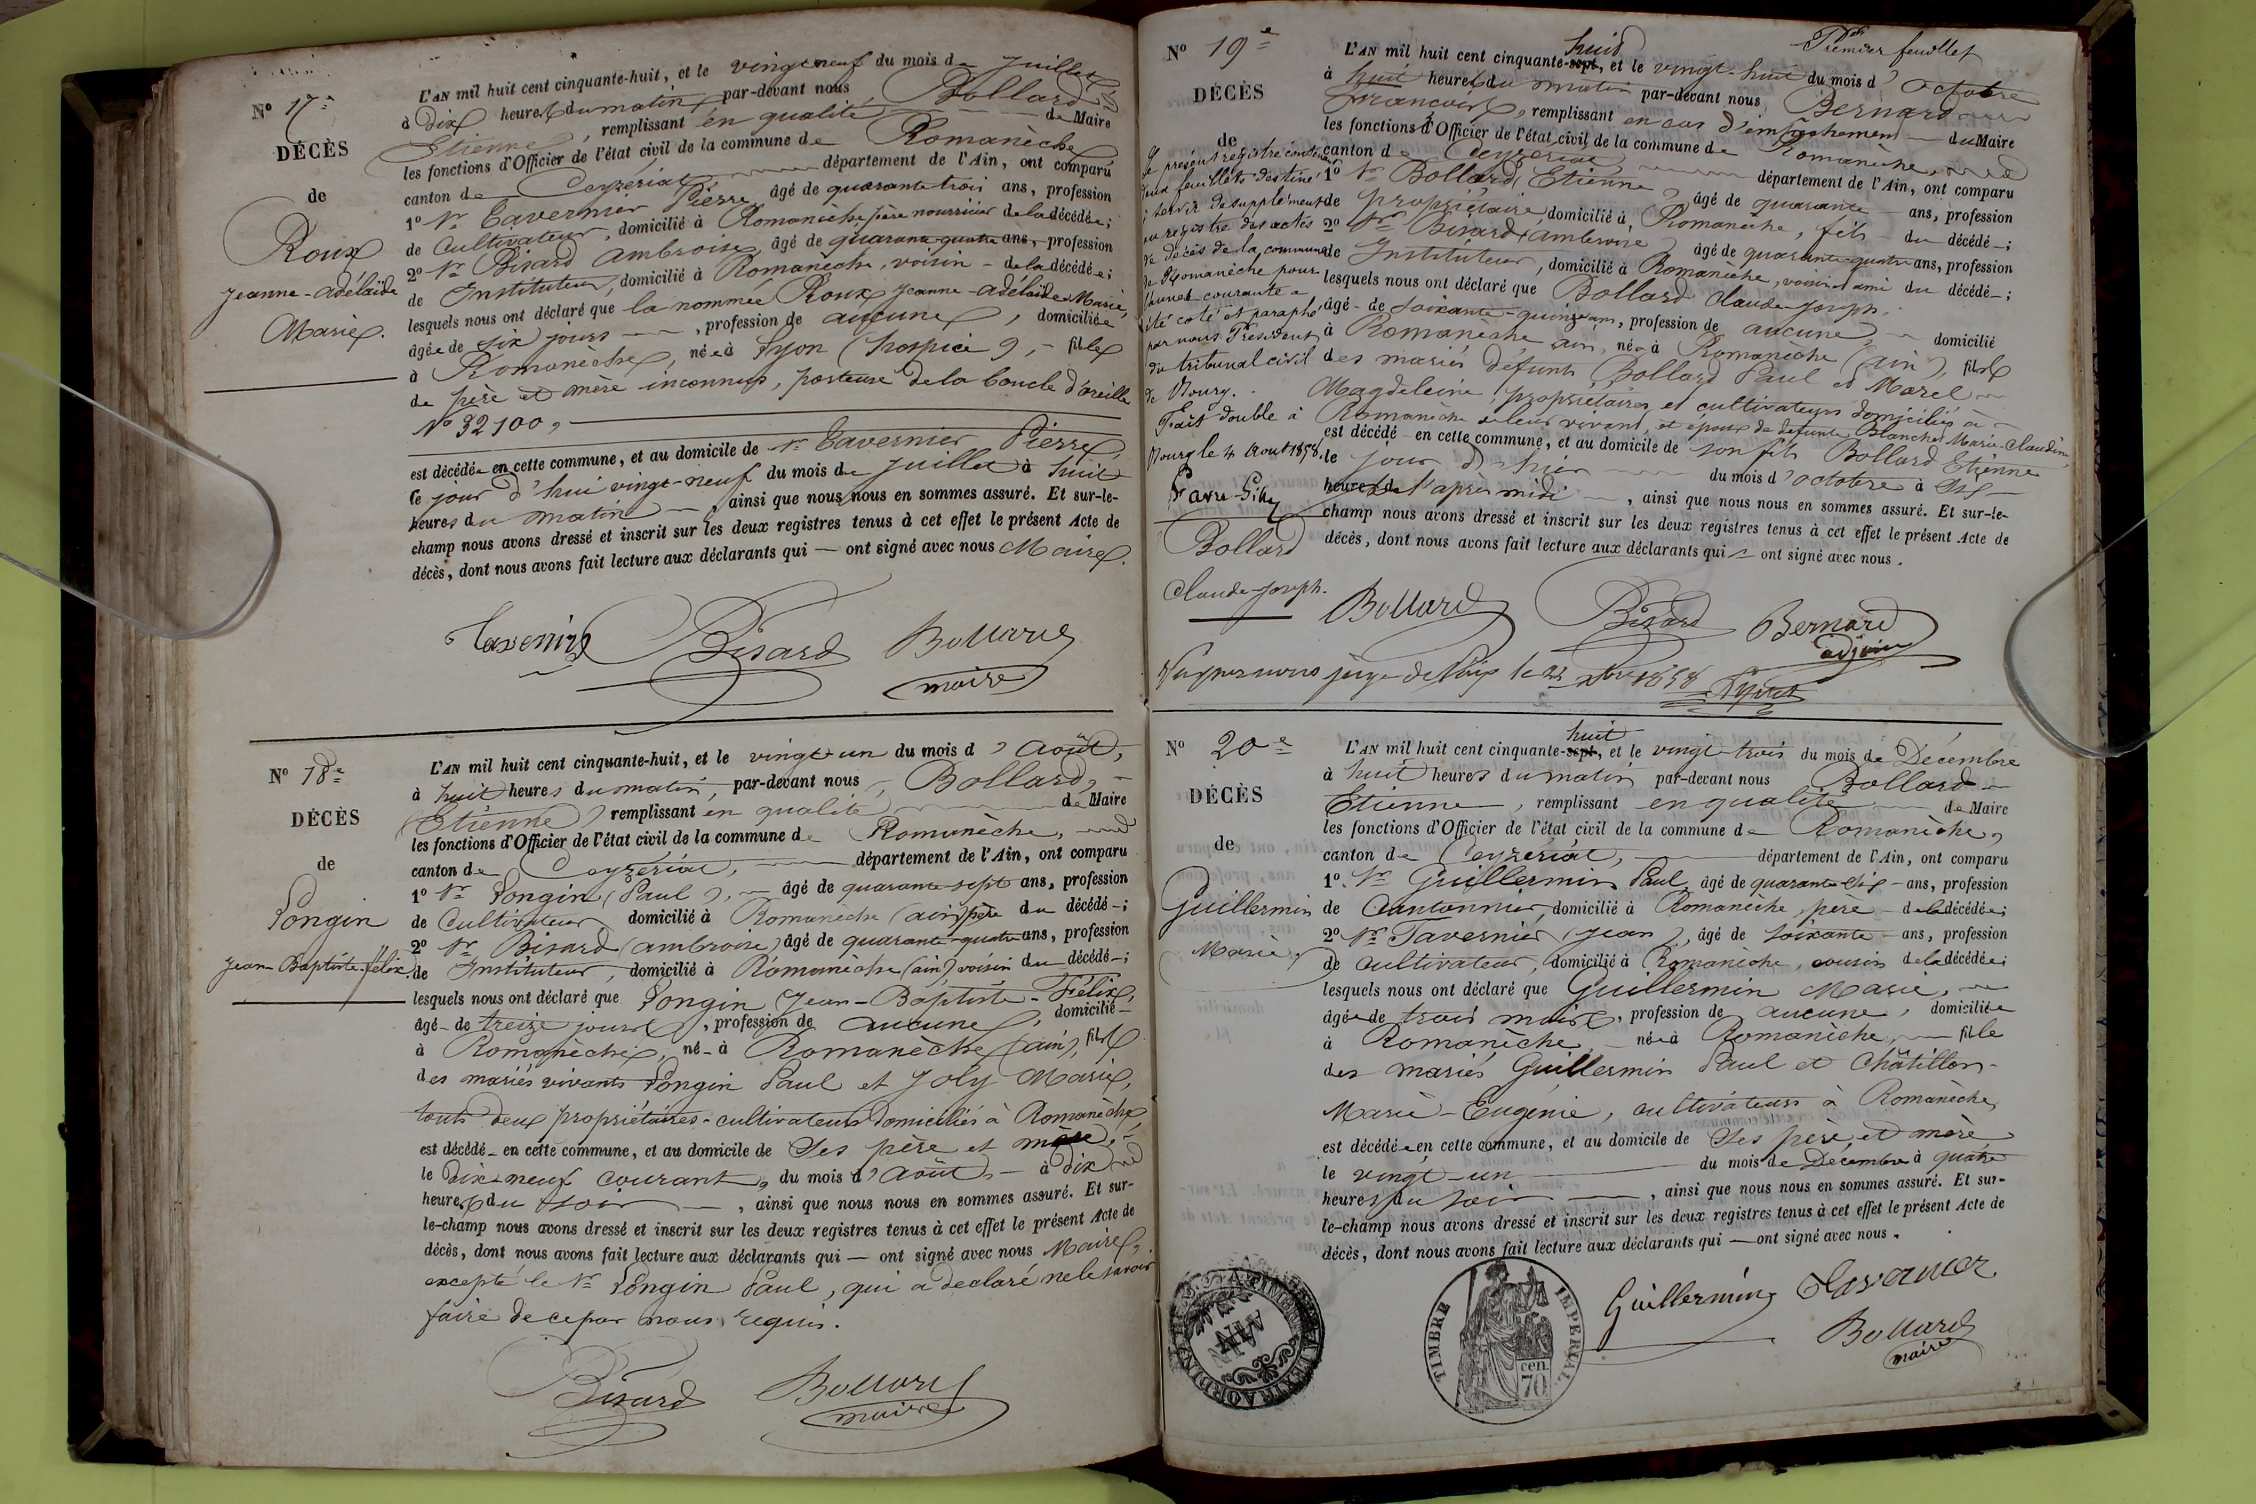 N° 17e
DÉCÈS
de
Roux
Jeanne-Adélaïde
Marie.
L'AN mil huit cent cinquante-huit, et le vingt neuf du mois de Juillet
à dix heures du matin, par-devant nous, Bollard
Etienne, remplissant en qualité de Maire
les fonctions d'Officier de l'état civil de la commune de Romanèche
canton de Ceyzériat département de l'Ain, ont comparu
1° Sr Tavernier Pierre, âgé de quarante trois ans, profession
de Cultivateur, domicilié à Romanèche, père nourricier de la décédée;
2° Sr Bisard Ambroise, âgé de quarante-quatre ans, profession
de Instituteur, domicilié à Romanèche, voisin de la décédée;
lesquels nous ont déclaré que la nommée Roux Jeanne-Adélaïde Marie,
âgée de six jours, profession de aucune, domiciliée
à Romanèche, née à Lyon (hospice), fille
de père et mère inconnus, porteuse de la boucle d'oreille
N° 32100,
est décédée en cette commune, et au domicile de Sr Tavernier Pierre,
le jour d'hui vingt-neuf du mois de Juillet à huit
heures du matin, ainsi que nous nous en sommes assuré. Et sur-le-
champ nous avons dressé et inscrit sur les deux registres tenus à cet effet le présent Acte de
décès, dont nous avons fait lecture aux déclarants qui — ont signé avec nous Maire.
Bisard Bollard
maire
N° 18e
DÉCÈS
de
Pongin
Jean-Baptiste-Félix.
L'AN mil huit cent cinquante-huit, et le vingt-un du mois d'Août,
à huit heures du matin, par-devant nous, Bollard,
(Etienne) remplissant en qualité de Maire
les fonctions d'Officier de l'état civil de la commune de Romanèche,
canton de Ceyzériat, département de l'Ain, ont comparu
1° Sr Pongin (Paul), âgé de quarante-sept ans, profession
de Cultivateur domicilié à Romanèche (ain) père du décédé;
2° Sr Bisard (Ambroise) âgé de quarante-quatre ans, profession
de Instituteur, domicilié à Romanèche (ain) voisin du décédé;
lesquels nous ont déclaré que Pongin Jean-Baptiste-Félix,
âgé de treize jours, profession de aucune, domicilié
à Romanèche, né à Romanèche (ain), fils
des mariés vivants Pongin Paul et Joly Marie,
touts deux propriétaires-cultivateurs domiciliés à Romanèche,
est décédé en cette commune, et au domicile de ses père et mère,
le dix-neuf courant, du mois d'Août, à dix
heures du soir, ainsi que nous nous en sommes assuré. Et sur-
le-champ nous avons dressé et inscrit sur les deux registres tenus à cet effet le présent Acte de
décès, dont nous avons fait lecture aux déclarants qui — ont signé avec nous Maire,
excepté le Sr Pongin Paul, qui a déclaré ne le savoir
faire de ce par nous requis.
Bisard Bollard
maire
Premier feuillet
N° 19e
DÉCÈS
de
Le présent registre contenant
deux feuillets destiné
à servir de supplément
au registre des actes
de décès de la commune
de Romanèche pour
l'année courante a
été coté et paraphé
par nous Président
du tribunal civil
de Bourg.
Fait double à
Bourg le 4 Aout 1858.
Bollard
Claude-Joseph.
huit
L'AN mil huit cent cinquante-sept, et le vingt-huit du mois d'Octobre
à huit heures du matin par-devant nous Bernard
François, remplissant en cas d'empêchement du Maire
les fonctions d'Officier de l'état civil de la commune de Romanèche,
canton de Ceyzériat département de l'Ain, ont comparu
1° Sr Bollard (Etienne) âgé de quarante ans, profession
de propriétaire domicilié à Romanèche, fils du décédé;
2° Sr Bisard (Ambroise) âgé de quarante-quatre ans, profession
de Instituteur, domicilié à Romanèche, voisin et ami du décédé;
lesquels nous ont déclaré que Bollard Claude-Joseph.
âgé de soixante-quinze ans, profession de aucune domicilié
à Romanèche, né à Romanèche (ain), fils
des mariés défunts Bollard Paul et Morel
Magdeleine, propriétaires et cultivateurs domiciliés à
Romanèche de leur vivant, et époux de défunte Blanche Marie-Claudine,
est décédé en cette commune, et au domicile de son fils Bollard Etienne
le jour d'hier du mois d'octobre à six
heures de l'après midi, ainsi que nous nous en sommes assuré. Et sur-le-
champ nous avons dressé et inscrit sur les deux registres tenus à cet effet le présent Acte de
décès, dont nous avons fait lecture aux déclarants qui — ont signé avec nous.
Bollard Bisard Bernard
adjoint
juge de Paix le 22 1858
N° 20e
DÉCÈS
de
Guillermin
Marie,
huit
L'AN mil huit cent cinquante-sept, et le vingt-trois du mois de Décembre
à huit heures du matin par-devant nous Bollard
Etienne, remplissant en qualité de Maire
les fonctions d'Officier de l'état civil de la commune de Romanèche,
canton de Ceyzériat, département de l'Ain, ont comparu
1° Sr Guillermin Paul, âgé de quarante six ans, profession
de Cantonnier, domicilié à Romanèche, père de la décédée;
2° Sr Tavernier (Jean), âgé de soixante ans, profession
de cultivateur, domicilié à Romanèche, cousin de la décédée;
lesquels nous ont déclaré que Guillermin Marie,
âgée de trois mois, profession de aucune, domiciliée
à Romanèche, née à Romanèche, fille
des mariés Guillermin Paul et Châtillon-
Marie-Eugénie, cultivateurs à Romanèche,
est décédée en cette commune, et au domicile de ses père et mère
le vingt-un du mois de Décembre à quatre
heures du soir, ainsi que nous nous en sommes assuré. Et sur-
le-champ nous avons dressé et inscrit sur les deux registres tenus à cet effet le présent Acte de
décès, dont nous avons fait lecture aux déclarants qui — ont signé avec nous.
Guillermin
Bollard
maire
AIN
TIMBRE IMPERIAL
70 cen.